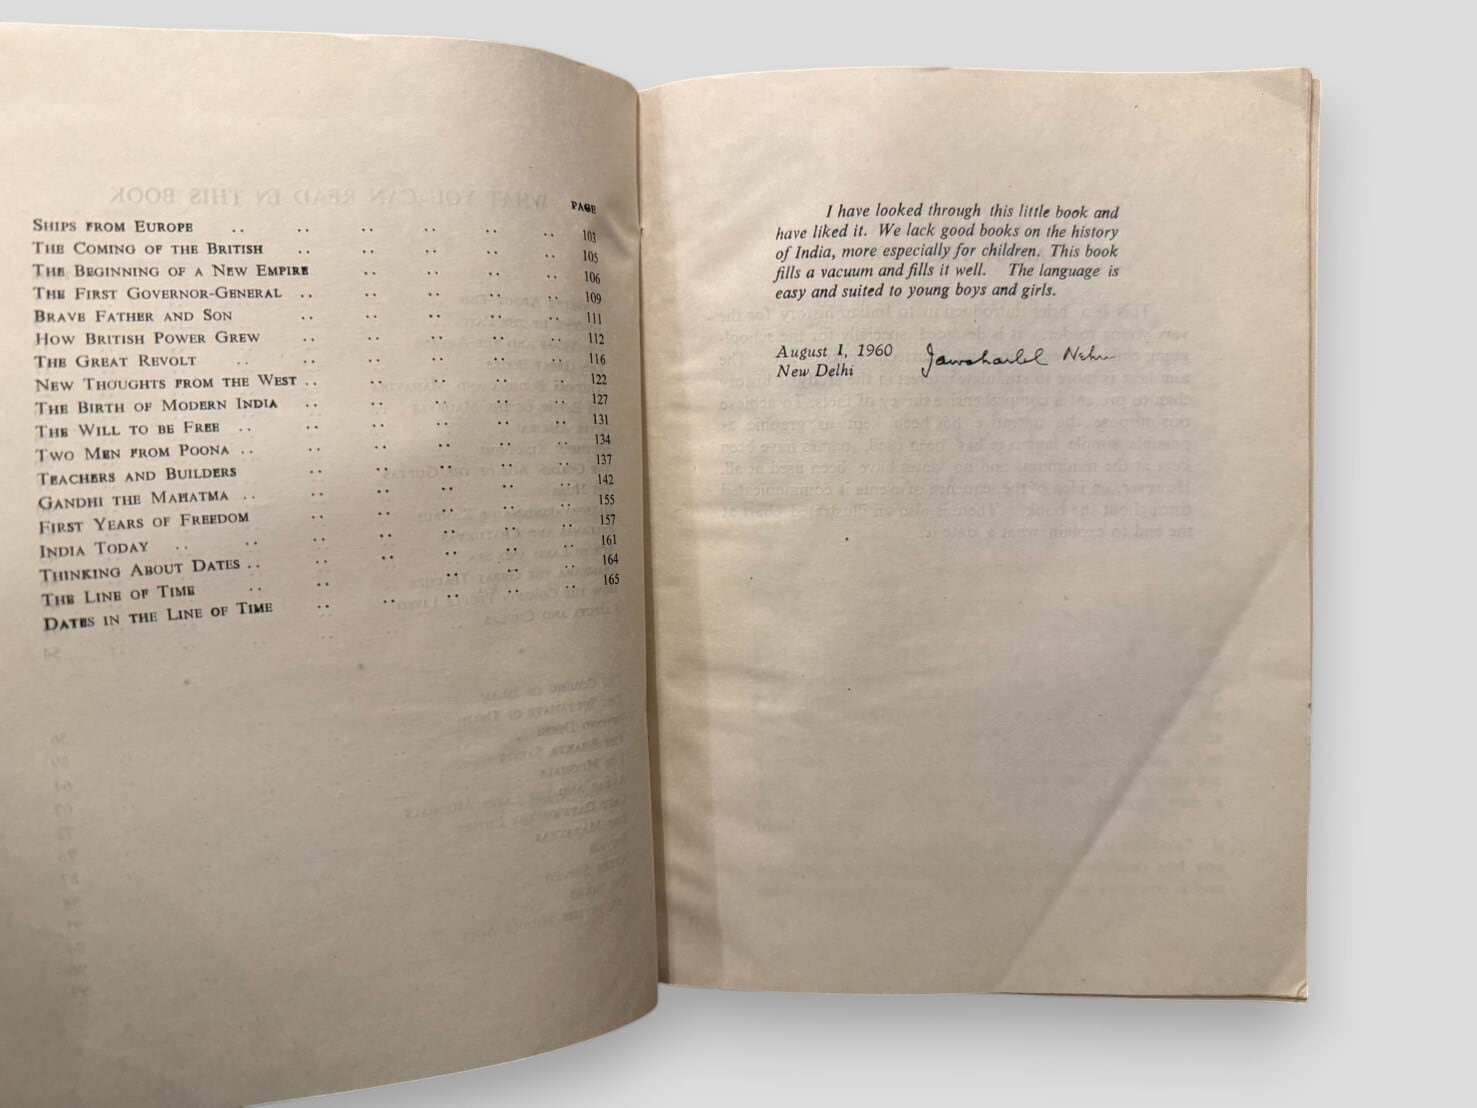 PAGE
SHIPS FROM EUROPE .. .. .. .. .. .. 103
THE COMING OF THE BRITISH .. .. .. .. .. 105
THE BEGINNING OF A NEW EMPIRE .. .. .. .. 106
THE FIRST GOVERNOR-GENERAL .. .. .. .. .. 109
BRAVE FATHER AND SON .. .. .. .. .. 111
HOW BRITISH POWER GREW .. .. .. .. .. 112
THE GREAT REVOLT .. .. .. .. .. .. 116
NEW THOUGHTS FROM THE WEST .. .. .. .. .. 122
THE BIRTH OF MODERN INDIA .. .. .. .. .. 127
THE WILL TO BE FREE .. .. .. .. .. .. 131
TWO MEN FROM POONA .. .. .. .. .. .. 134
TEACHERS AND BUILDERS .. .. .. .. .. 137
GANDHI THE MAHATMA .. .. .. .. .. .. 142
FIRST YEARS OF FREEDOM .. .. .. .. .. 155
INDIA TODAY .. .. .. .. .. .. .. 157
THINKING ABOUT DATES .. .. .. .. .. .. 161
THE LINE OF TIME .. .. .. .. .. 164
DATES IN THE LINE OF TIME .. .. .. .. .. 165
I have looked through this little book and
have liked it. We lack good books on the history
of India, more especially for children. This book
fills a vacuum and fills it well. The language is
easy and suited to young boys and girls.
August 1, 1960 Jawaharlal Nehru
New Delhi